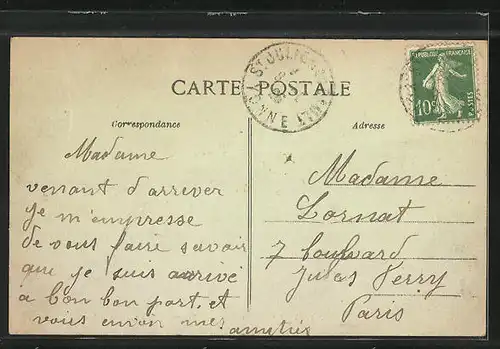 CARTE POSTALE
Correspondance
Adresse
RÉPUBLIQUE FRANÇAISE
10c
POSTES
Madame
venant d'arriver
je m'empresse
de vous faire savoir
que je suis arrivé
a bon bon port, et
vous envoi mes amitiés
Madame
Lornat
7 boulvard
Jules Ferry
Paris